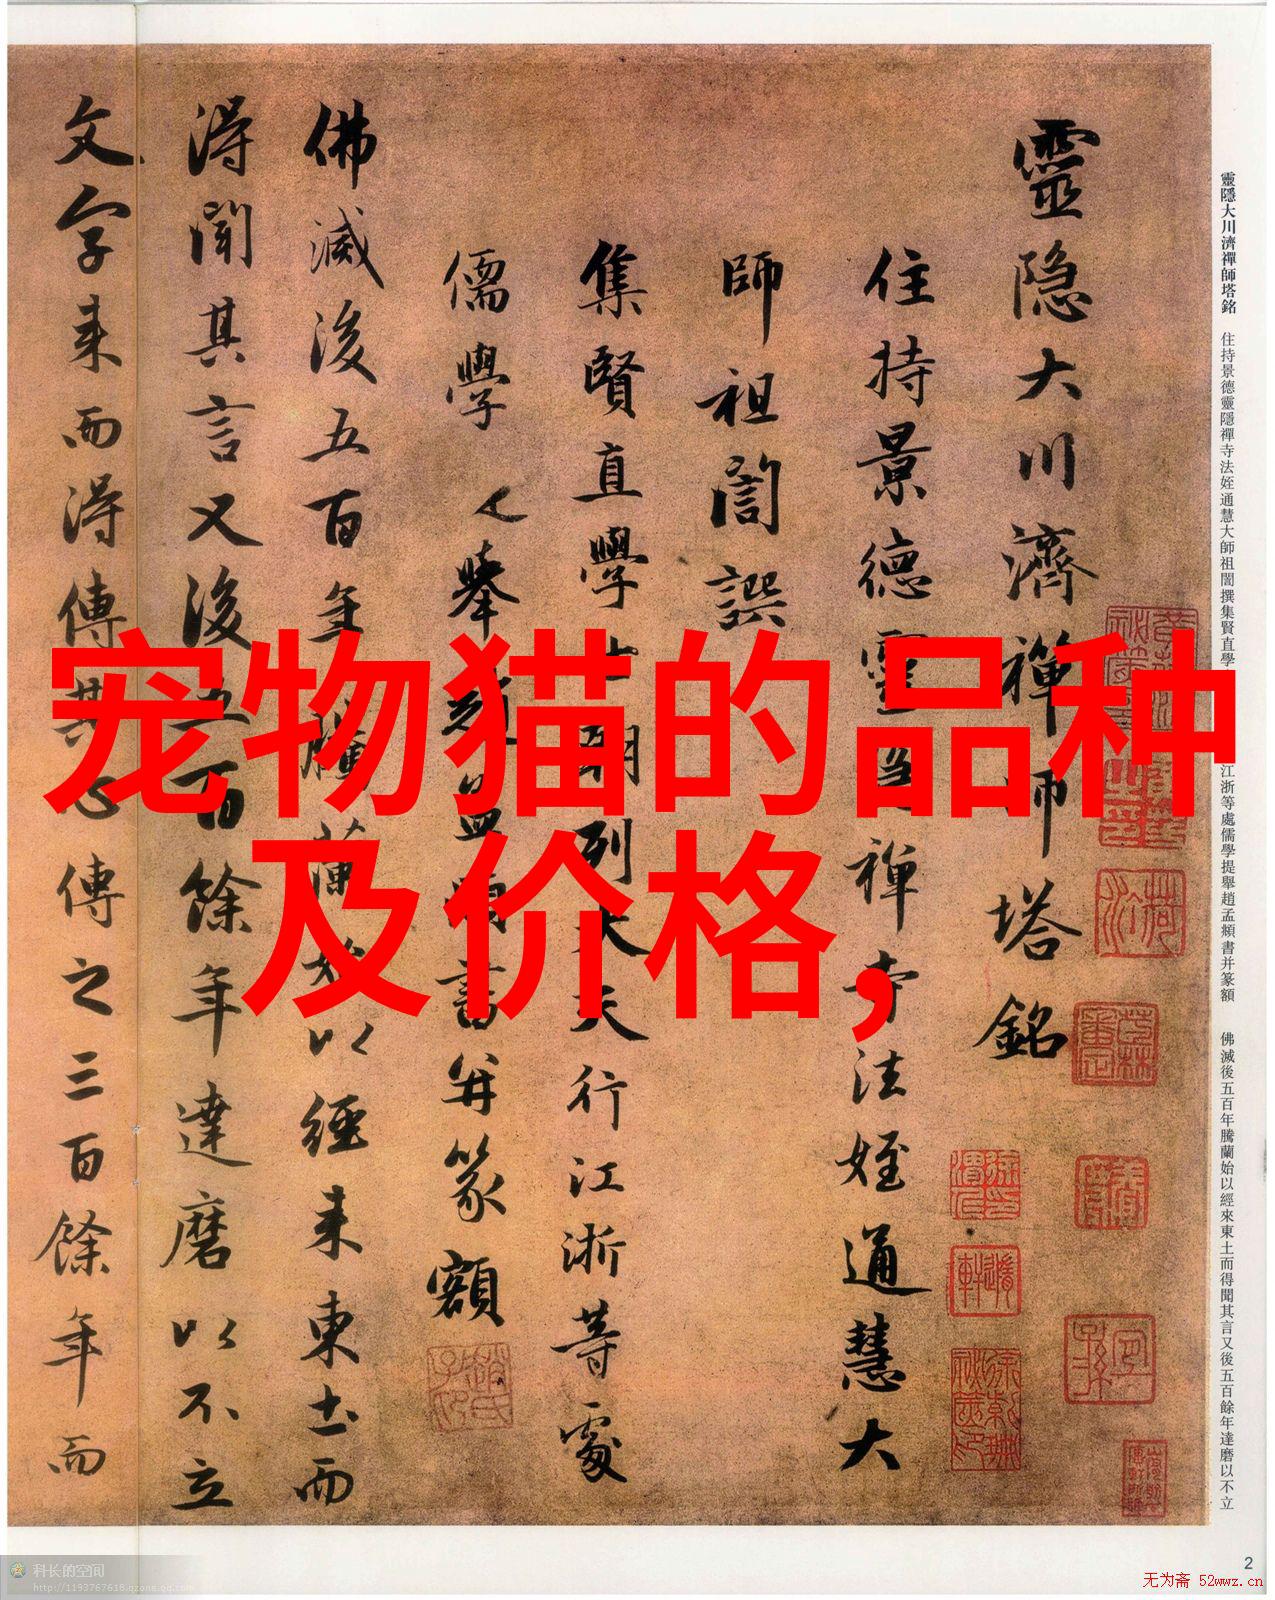 宠物猫的品种
及价格,
靈隐大川濟禪師塔銘
住持景德靈隐禅寺法姪通慧大
師祖誾譔
集賢直學士朝列大夫行江浙等處
儒學提舉趙孟頫書并篆額
佛滅後五百年騰蘭始以經来東土而
得聞其言又後五百餘年達磨以不立
文字来而得傳其心傳之三百餘年而
靈隱大川濟禪師塔銘 住持景德靈隱禪寺法姪通慧大師祖誾撰集賢直學
江浙等處儒學提舉趙孟頫書并篆額 佛滅後五百年騰蘭始以經來東土而得聞其言又後五百餘年達磨以不立
2
科长的空间
http://1193767618.qzone.qq.com
无为斋 52wwz.cn